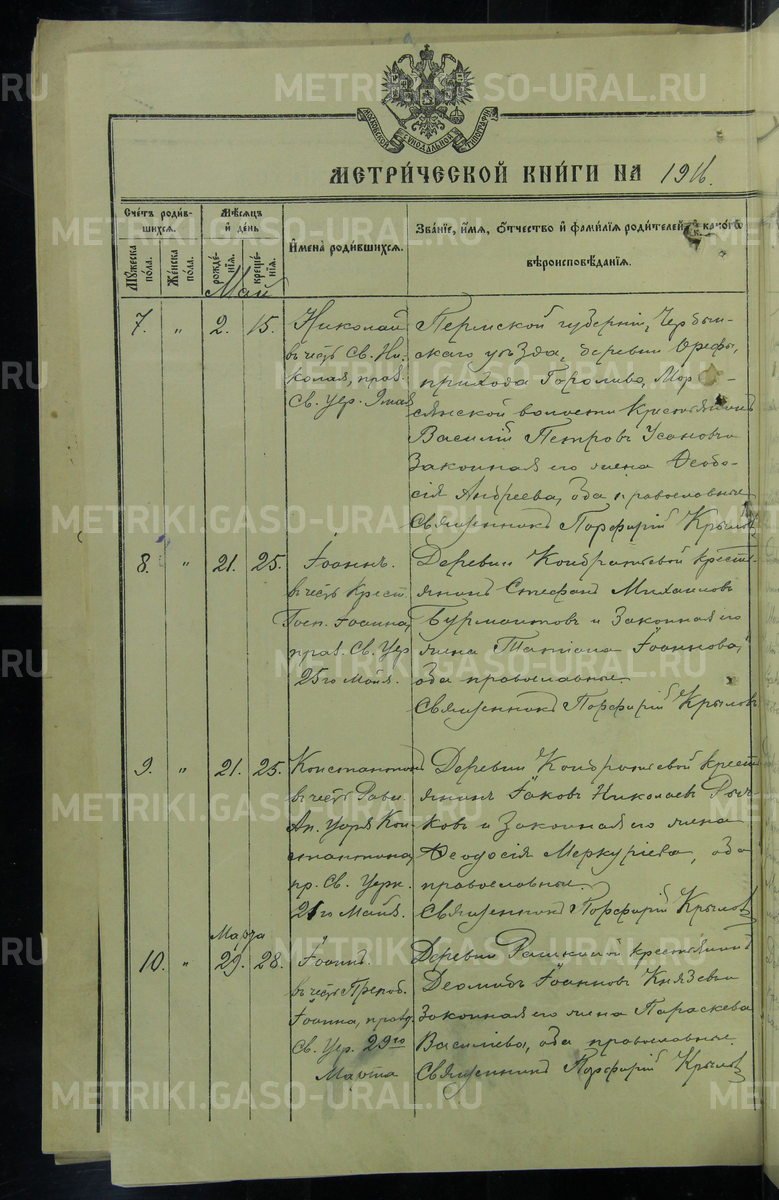 МОСКОВСКОЙ СѴНОДАЛЬНОЙ ТИПОГРАФІИ
МЕТРИ́ЧЕСКОЙ КНИ́ГИ НА 1916.
Сче́тъ роди́вшихся.
Мѣ́сяцъ и де́нь
И҆мена̀ роди́вшихся.
Зва́нїе, и҆́мя, о҆́тчество и҆ фами́лїя роди́телей, и҆ како́гѡ вѣроисповѣ́данїя.
Му́жеска по́ла.
Же́нска по́ла.
рожде́нїя.
креще́нїя.
Май
7. " 2. 15. Николай
въ честь Св. Ни-
колая, праз.
Св. Цер. 9 мая
Пермской губерніи, Чердын-
скаго уѣзда, деревни
прихода
волости Крестьянинъ
Василій Петровъ
Законная его жена Ѳеодо-
сія Андреева, оба православные
Священникъ Порфирій Крыловъ
8. " 21. 25. Іоаннъ.
въ честь Крест.
Госп. Іоанна,
праз. Св. Цер
25го Мая.
Деревни Кондратьевой крест-
янинъ Стефанъ Михаиловъ
Бурмантовъ и Законная его
жена Татіана Іоаннова,
оба православные.
Священникъ Порфирій Крыловъ
9. " 21. 25. Константинъ
въ честь Равн.
Ап. Царя Кон-
стантина,
пр. Св. Церк.
21го Мая.
Деревни Кондратьевой крест
янинъ Іаковъ Николаевъ
ковъ и Законная его жена
Ѳеодосія Меркуріева, оба
православные.
Священникъ Порфирій Крыловъ
Марта
10. " 29. 28. Іоаннъ.
въ честь Препод.
Іоанна, празд.
Св. Цер. 29го
Марта
Деревни крестьянинъ
Іоанновъ Князевъ
законная его жена Параскева
Василіева, оба православные.
Священникъ Порфирій Крыловъ
METRIKI.GASO-URAL.RU